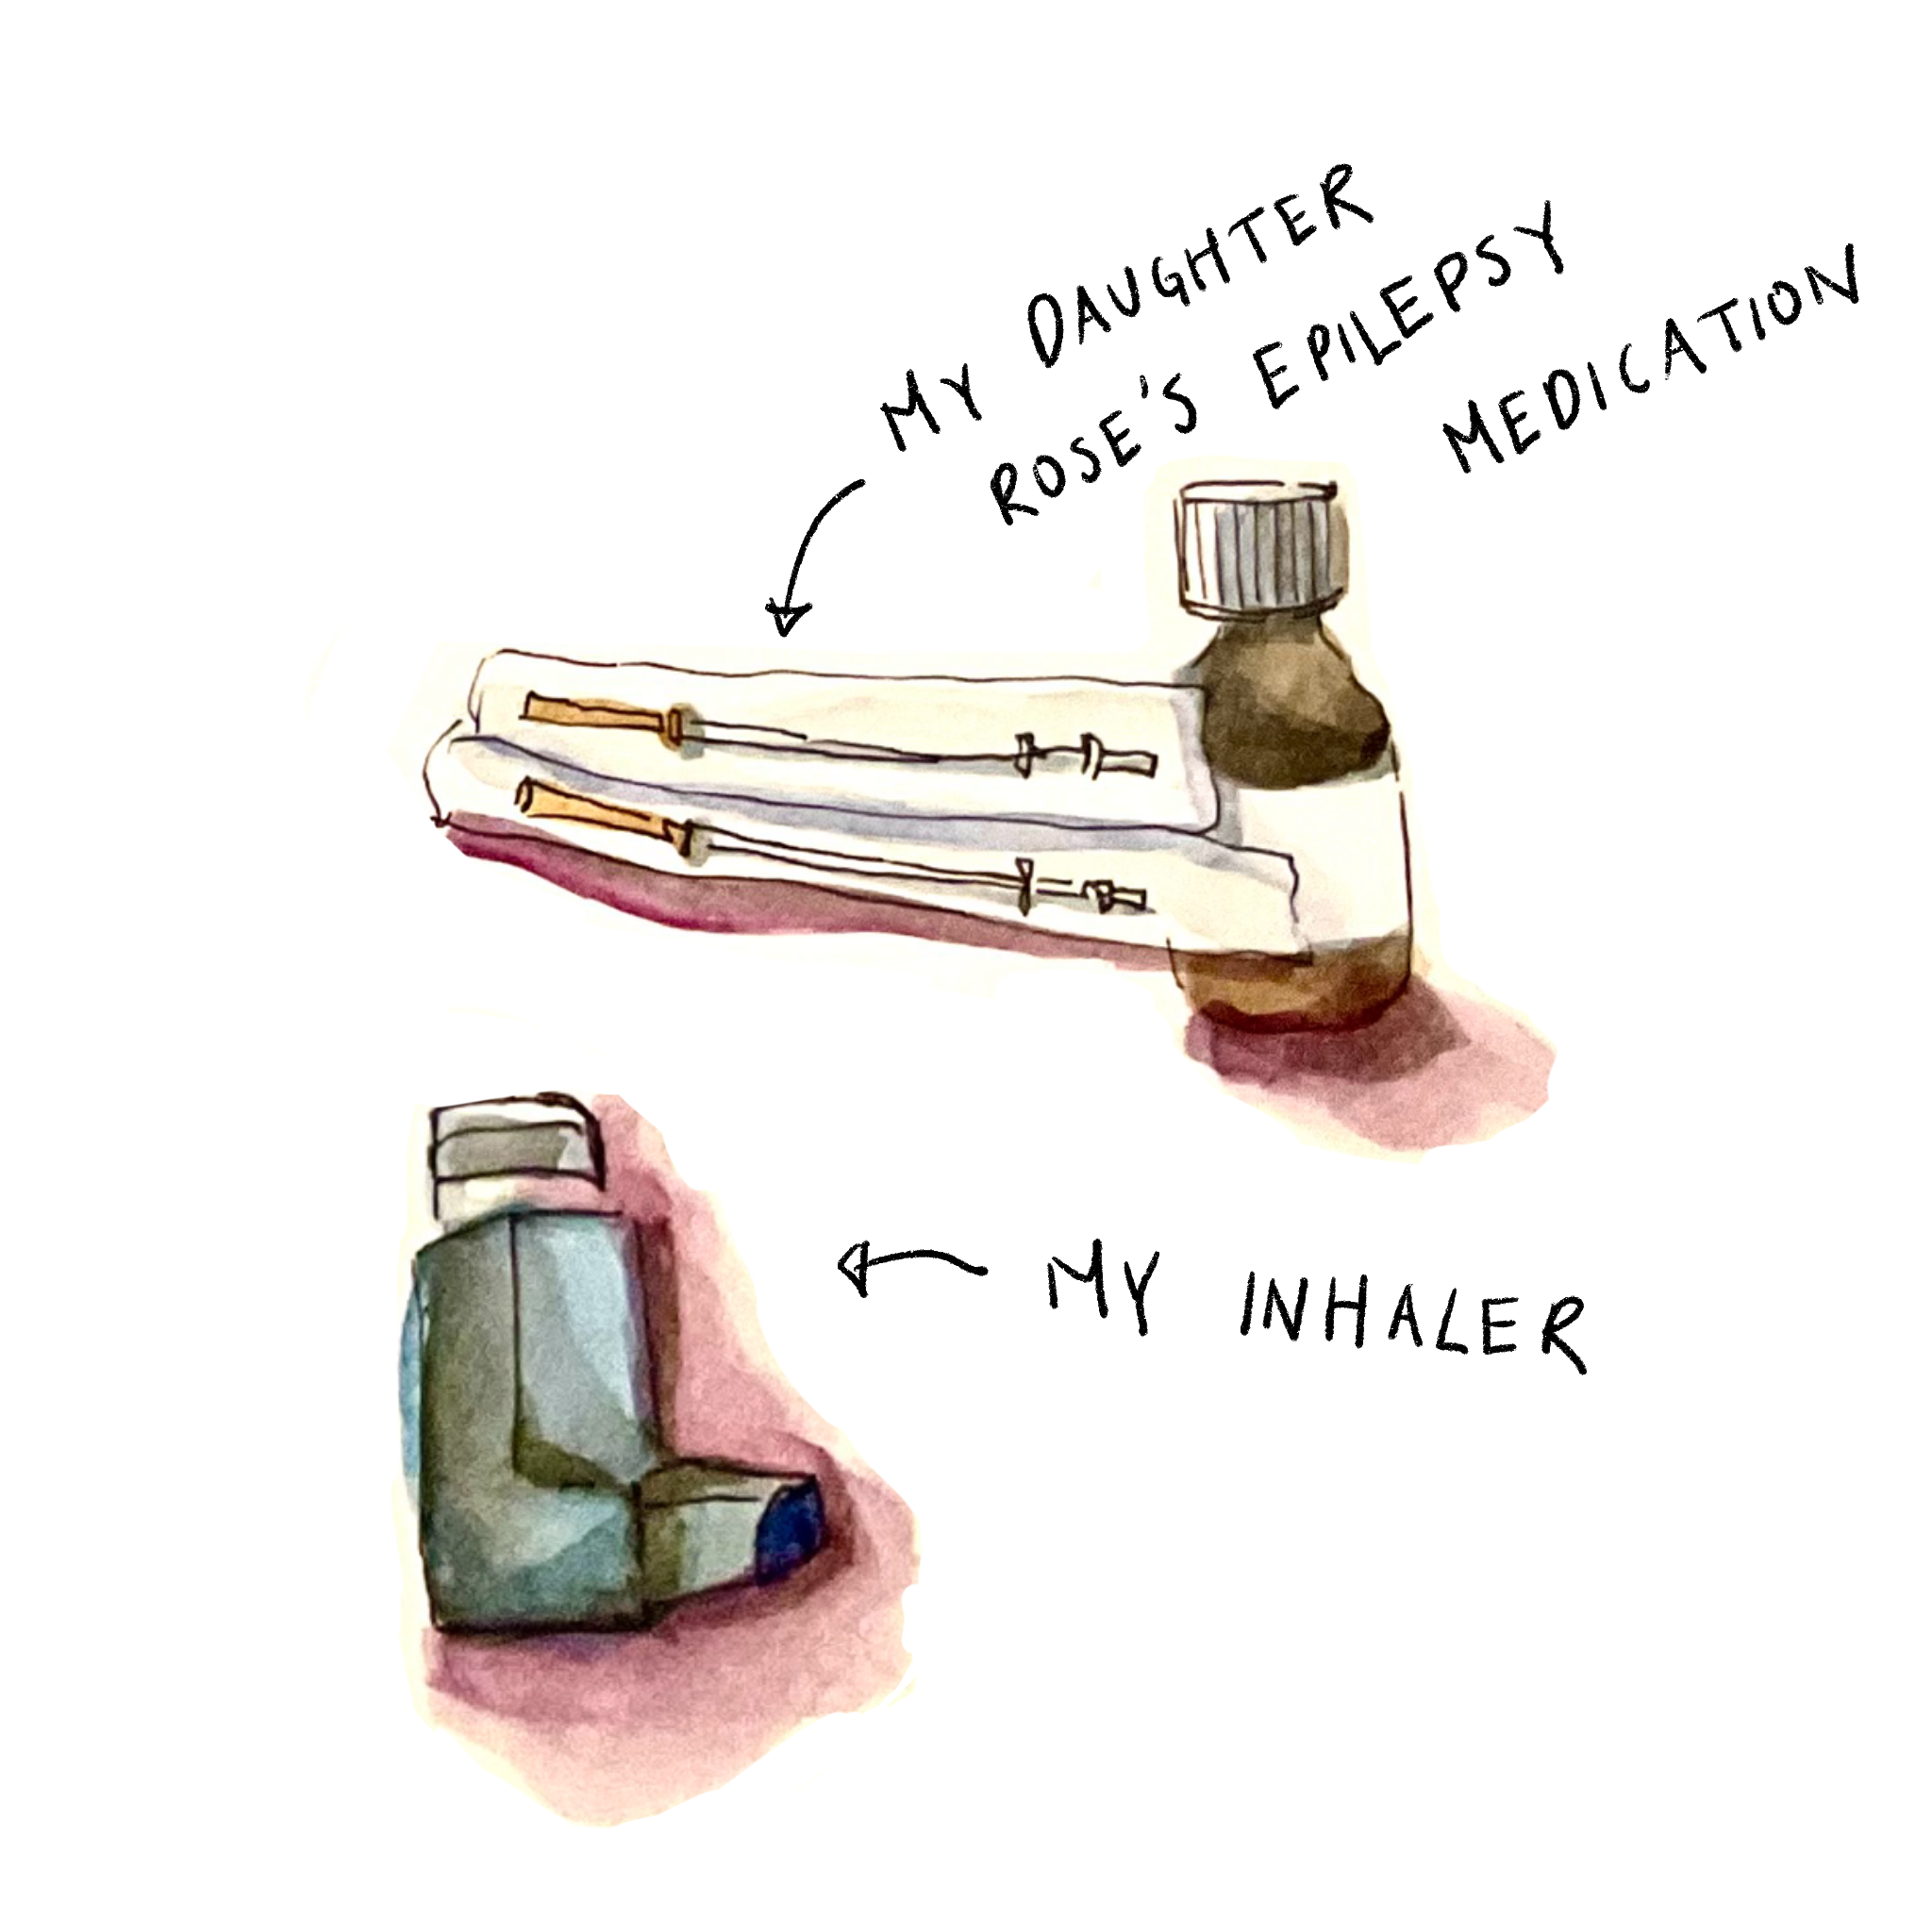 MY DAUGHTER
ROSE'S EPILEPSY
MEDICATION
MY INHALER